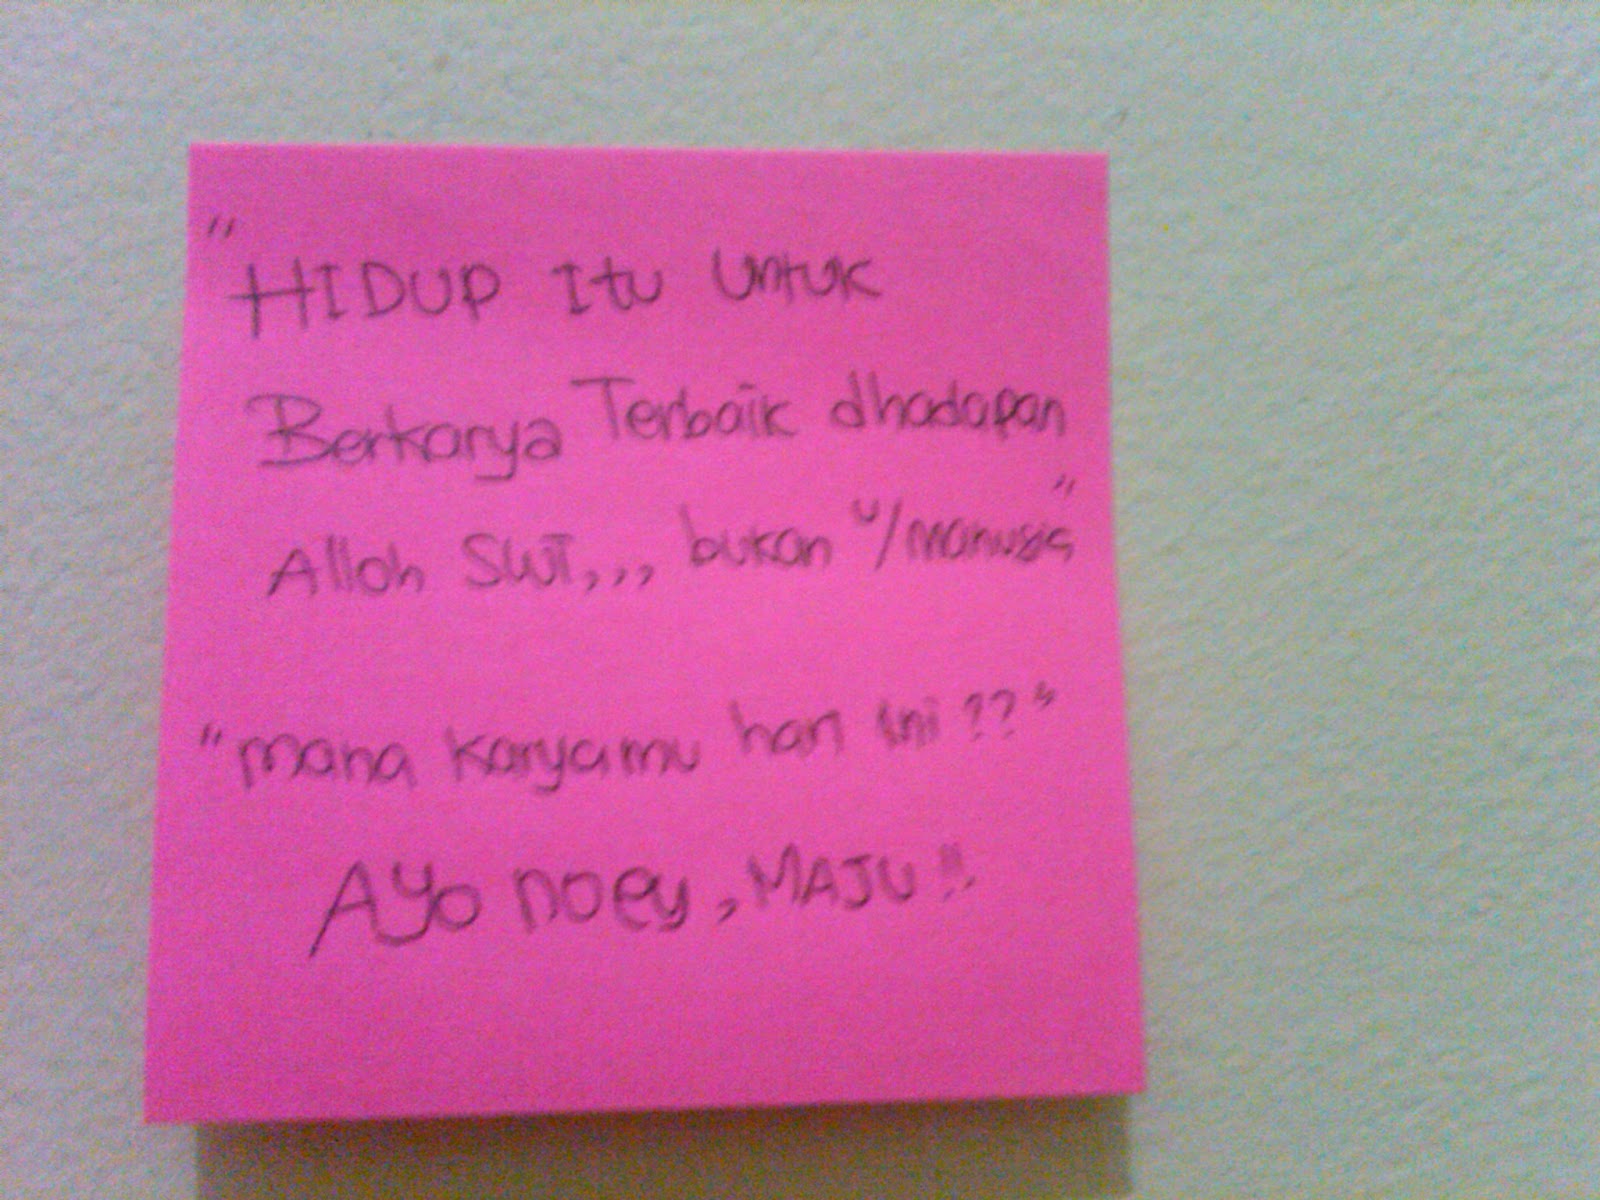 "HIDUP Itu Untuk
Berkarya Terbaik dhadapan
Alloh SWT,,, bukan u/manusia"
"mana karyamu hari ini??"
AYo noey, MAJU!!